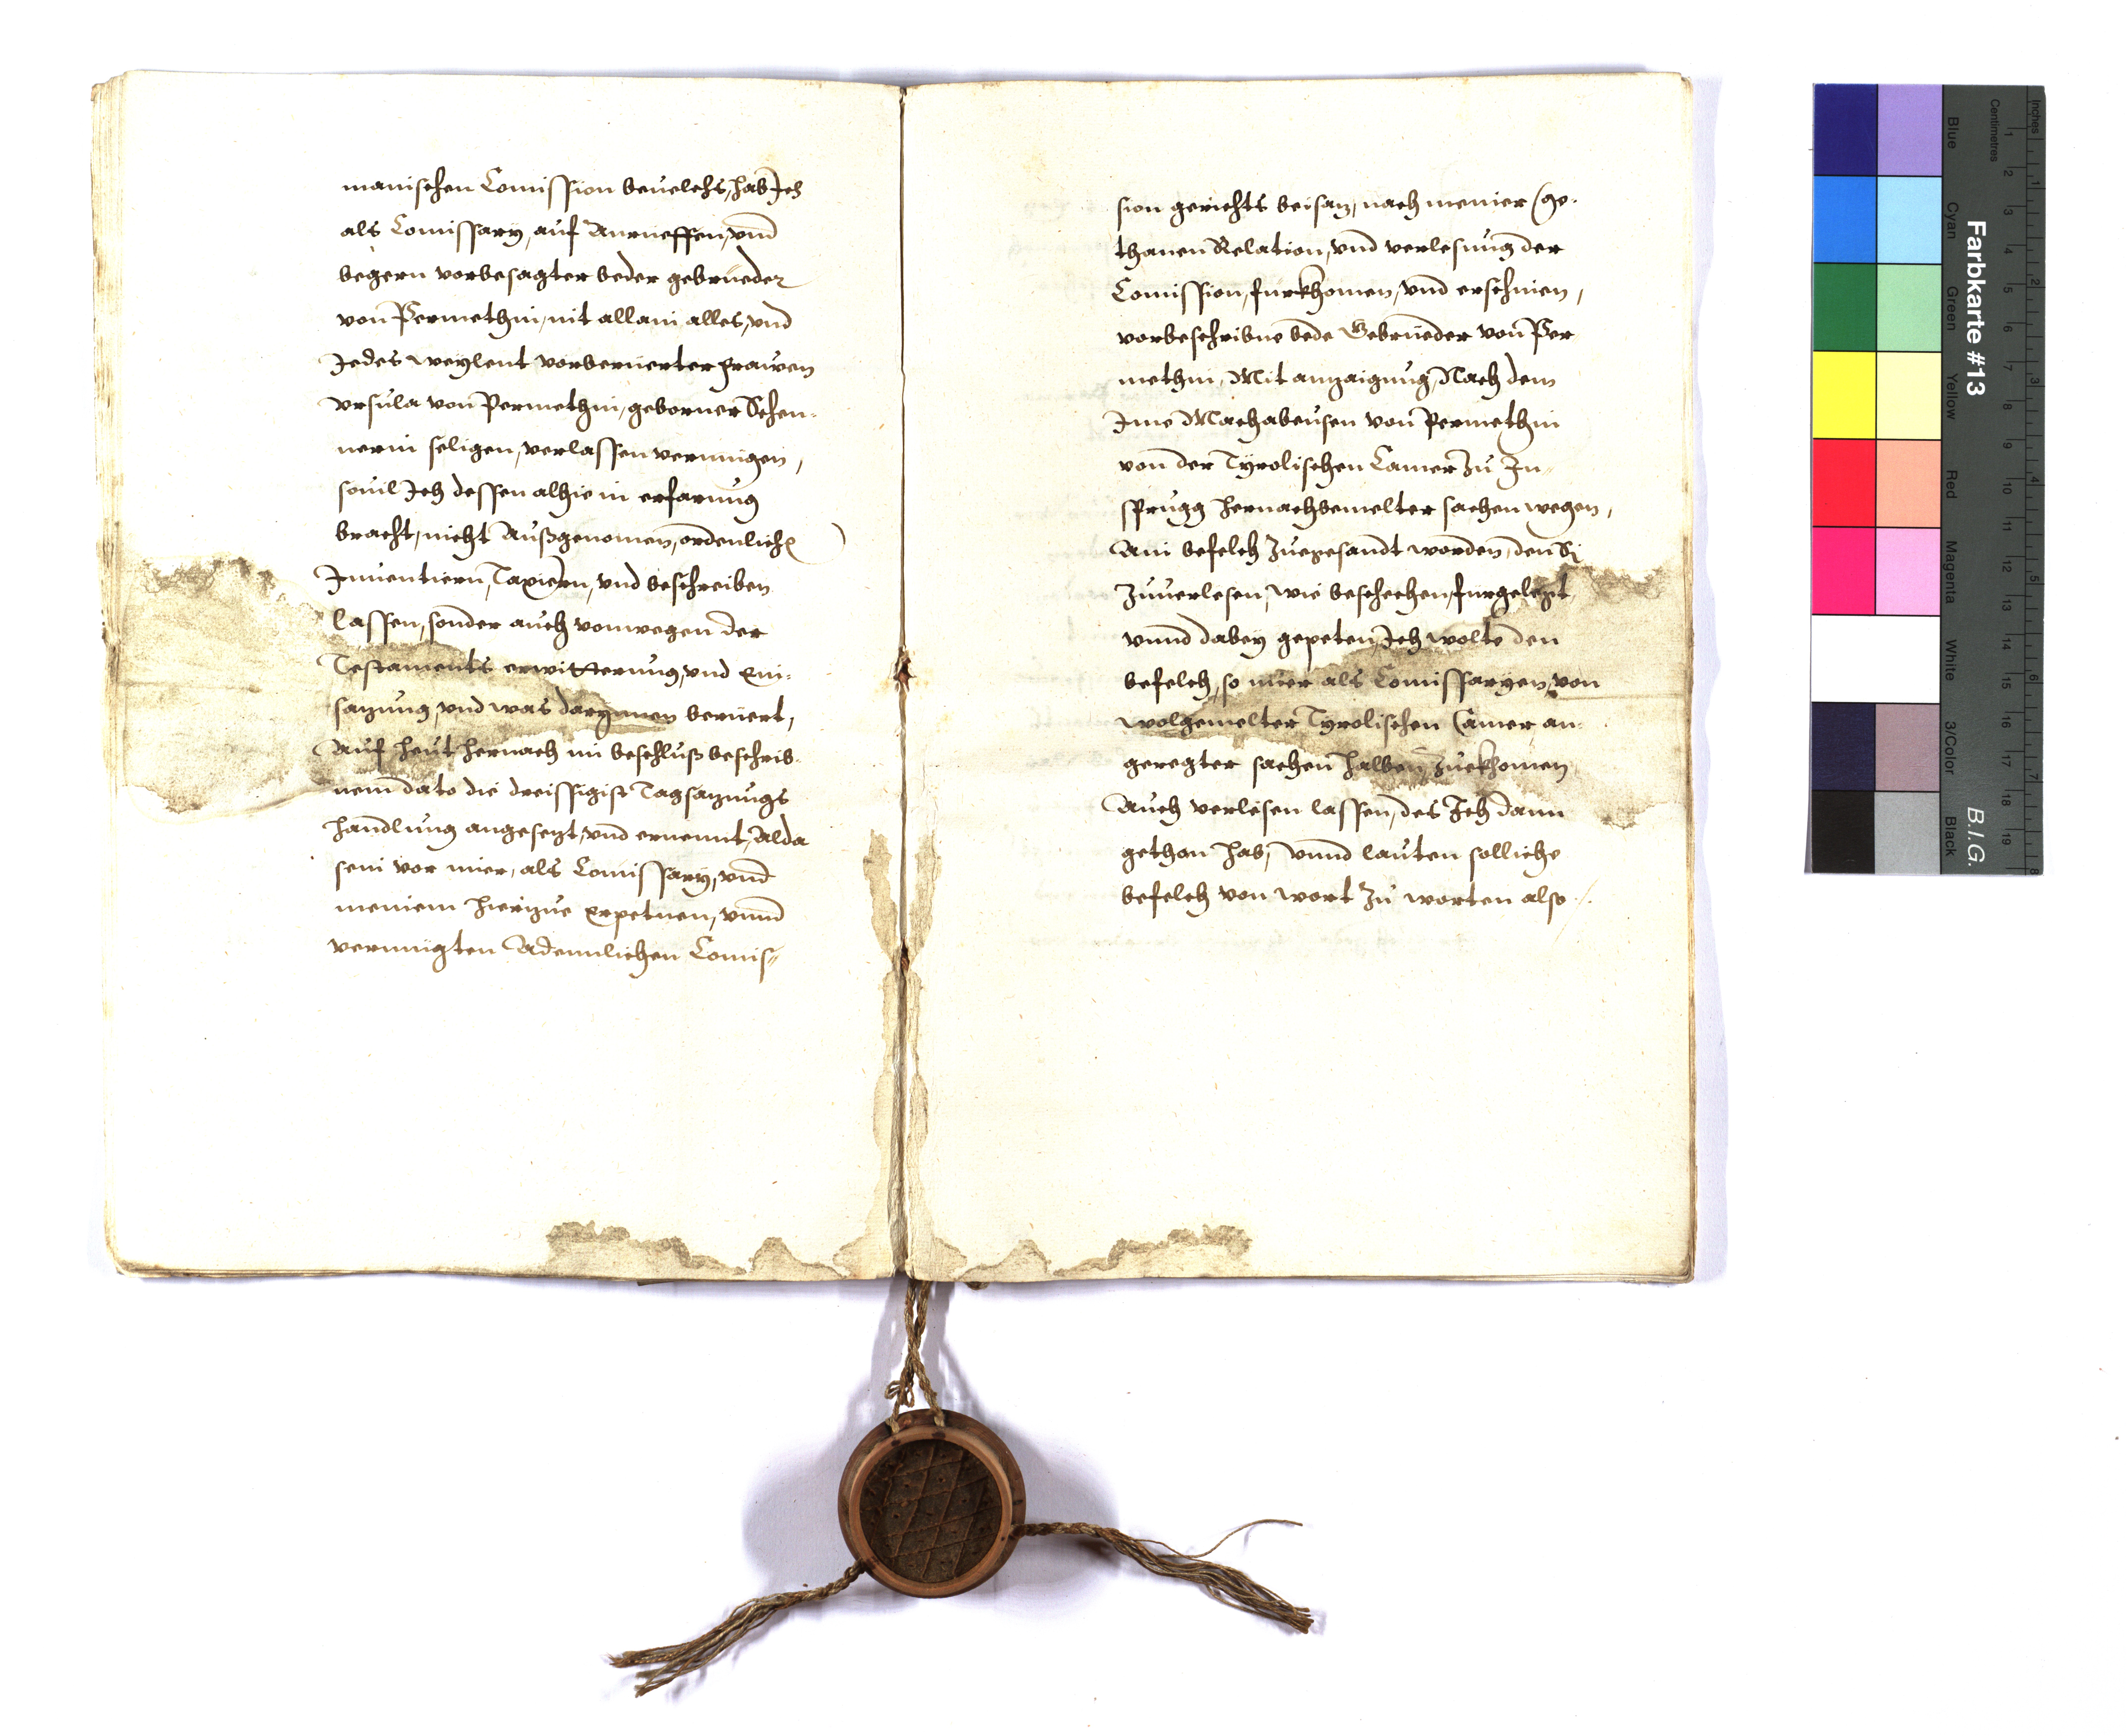 manischen Comission beuelchs, hab Ich
als Comissary, auf Anrueffen, vnd
begern vorbesagter beder gebrueder
von Permethin, nit allain alles, vnd
Jedes weylent vorberuerter frawen
Vrsula von Permethin, geborner Schen-
nerin seligen, verlassen vermügen,
souil Ich dessen alhie in erfarung
bracht, nicht Außgenomen, ordenlich
Inuentiern, Taxiern, vnd beschreiben
lassen, sonder auch vonwegen der
Testaments erwitterung, vnd Ein-
sazung, vnd was darynnen beruert,
Auf heut hernach im beschluß beschrib-
nem dato die dreissigist Tagsazungs
handlung angesezt, vnd ernennt, Alda
sein vor mier, als Comissary, vnd
meniem hierzue Erpetnen, vnnd
vermügten Adennlichen Comis-
sion gerichts beisaz, nach menier ge-
thanen Relation, vnd verlesung der
Comission, furkhomen, vnd erschinen,
vorbeschribne bede Gebrueder von Per
methin, Mit anzaigung, Nach dem
Ime Machabeusen von Permethin
von der Tyrolischen Camer Zu In-
sprugg hernachbemelter sachen wegen,
Ain befelch Zuegesandt worden, den Si
Zuuerlesen, wie beschechen, furgelegt
vnnd dabey gepeten, Ich wolte den
befelch, so mier als Comissaryen, von
wolgemelter Tyrolischen Camer an-
geregter sachen halben, Zuekhomen
Auch verlesen lassen, des Ich dann
gethan hab, vnnd lauten solliche
befelch von wort Zu worten also
Farbkarte #13
B.I.G.
Inches
Centimetres
Blue
Cyan
Green
Yellow
Red
Magenta
White
3/Color
Black
1
2
3
4
5
6
7
8
9
10
11
12
13
14
15
16
17
18
19
1
2
3
4
5
6
7
8